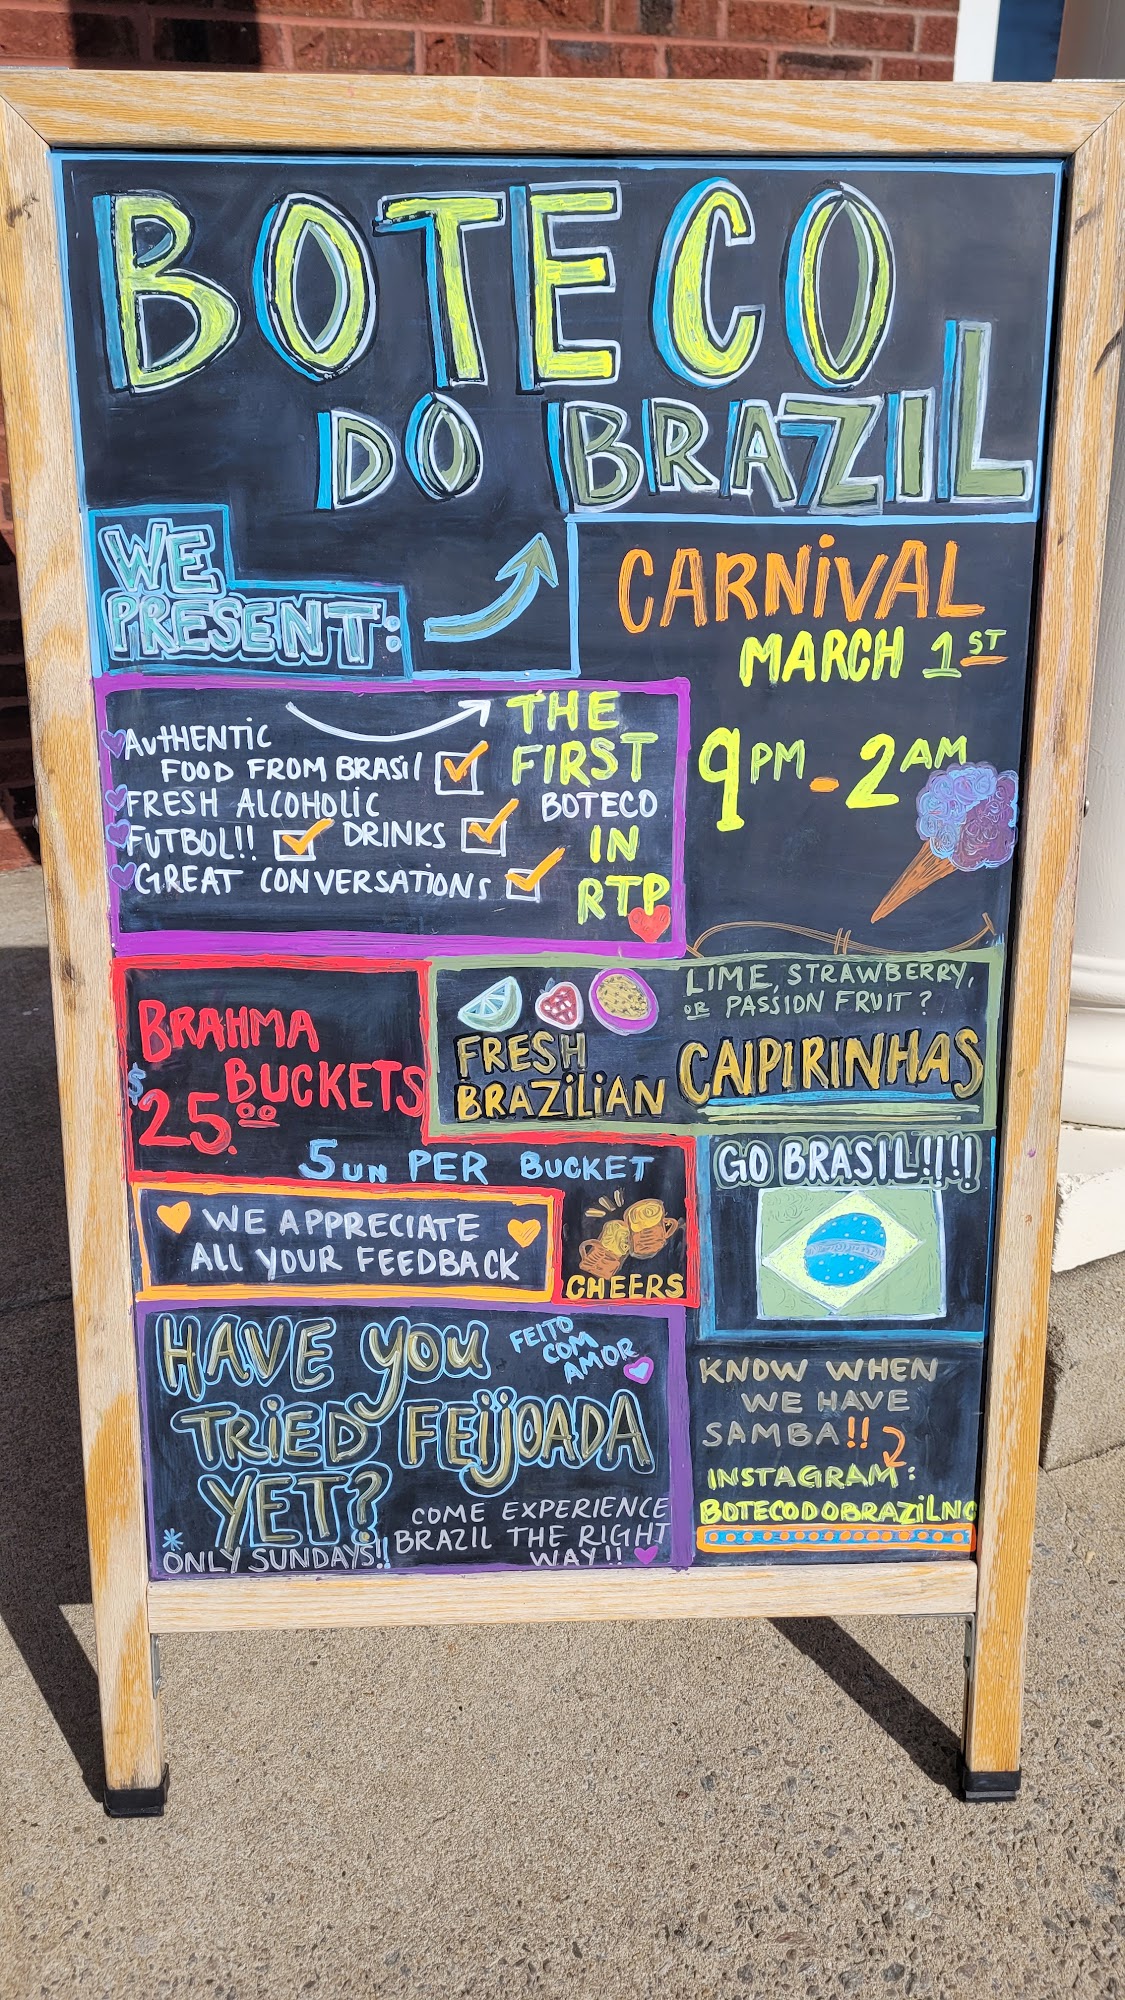 BOTECO
DO BRAZIL
WE
PRESENT:
CARNIVAL
MARCH 1ST
9PM - 2AM
AUTHENTIC
FOOD FROM BRASIL
FRESH ALCOHOLIC
FUTBOL!! DRINKS
GREAT CONVERSATIONS
THE
FIRST
BOTECO
IN
RTP
BRAHMA
BUCKETS
$25.00
5UN PER BUCKET
LIME, STRAWBERRY,
OR PASSION FRUIT?
FRESH
BRAZILIAN
CAIPIRINHAS
WE APPRECIATE
ALL YOUR FEEDBACK
CHEERS
GO BRASIL!!!!
HAVE YOU
TRIED FEIJOADA
YET?
FEITO
COM
AMOR
* ONLY SUNDAYS!!
COME EXPERIENCE
BRAZIL THE RIGHT
WAY!!
KNOW WHEN
WE HAVE
SAMBA!!
INSTAGRAM:
BOTECODOBRAZILNC